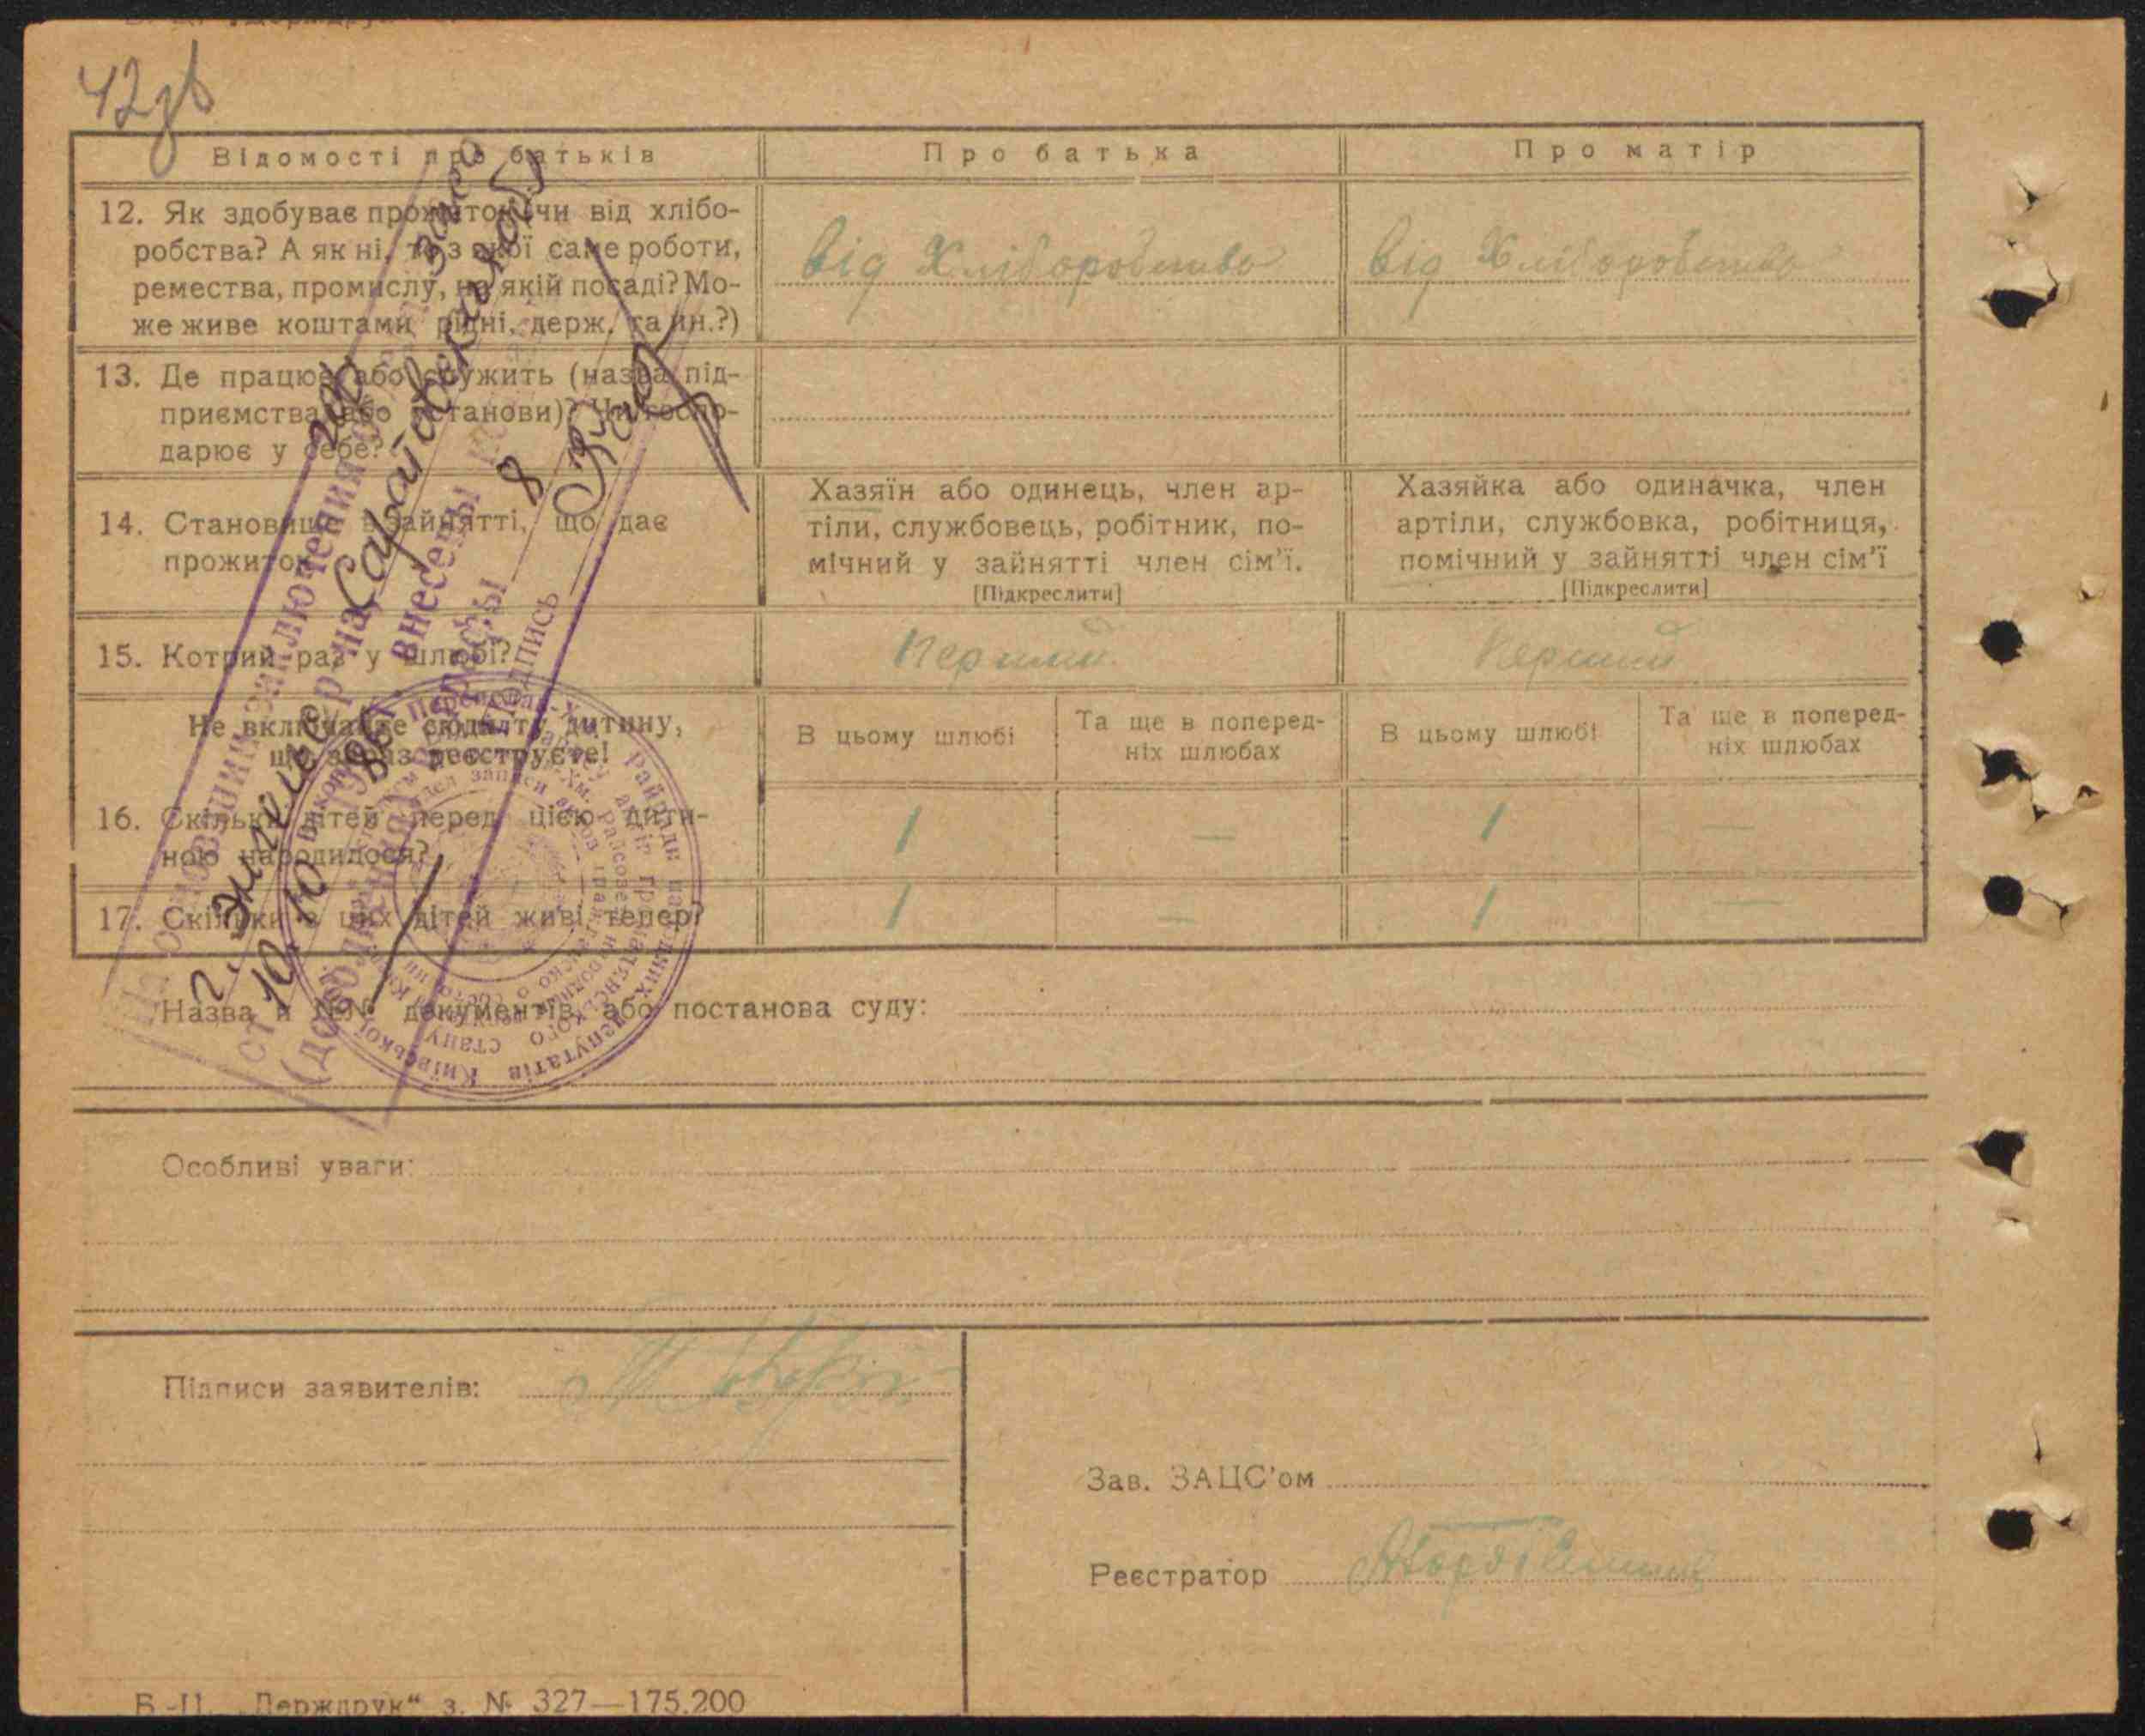 42зв
Відомості про батьків
Про батька
Про матір
12. Як здобуває прожиток (чи від хлібо-
робства? А як ні, то з якої саме роботи,
ремества, промислу, на якій посаді? Мо-
же живе коштами рідні, держ. та ин.?)
від Хліборобства
від Хліборобства
13. Де працює або служить (назва під-
приємства або установи)? Чи госпо-
дарює у себе?
14. Становище в зайнятті, що дає
прожиток
Хазяїн або одинець, член ар-
тіли, службовець, робітник, по-
мічний у зайнятті член сім'ї.
[Підкреслити]
Хазяйка або одиначка, член
артіли, службовка, робітниця,
помічний у зайнятті член сім'ї
[Підкреслити]
15. Котрий раз у шлюбі?
Перший
Перший
Не включайте сюди ту дитину,
що зараз реєструєте!
В цьому шлюбі
Та ще в поперед-
ніх шлюбах
В цьому шлюбі
Та ще в поперед-
ніх шлюбах
16. Скільки дітей перед цією дити-
ною народилося?
1
—
1
—
17. Скільки з цих дітей живі тепер?
1
—
1
—
Назва й №№ документів, або постанова суду:
Особливі уваги:
Підписи заявителів:
Зав. ЗАЦС'ом
Реєстратор
Б.-Ц. „Держдрук“ з. № 327—175.200